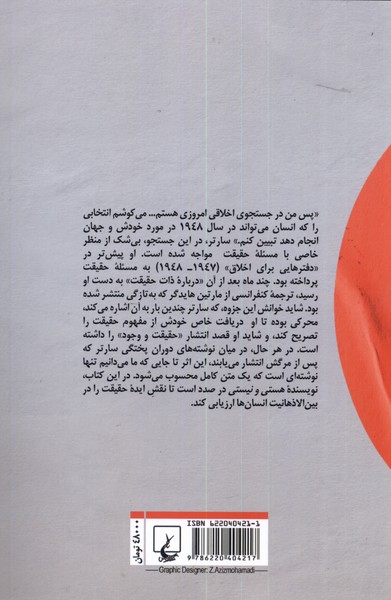 «پس من در جستجوی اخلاقی امروزی هستم... می‌کوشم انتخابی
را که انسان می‌تواند در سال ۱۹۴۸ در مورد خودش و جهان
انجام دهد تبیین کنم.» سارتر، در این جستجو، بی‌شک از منظر
خاصی با مسئلهٔ حقیقت مواجه شده است. او پیش‌تر در
«دفترهایی برای اخلاق» (۱۹۴۷ـ ۱۹۴۸) به مسئلهٔ حقیقت
پرداخته بود. چند ماه بعد از آن «دربارهٔ ذات حقیقت» به دست او
رسید، ترجمهٔ کنفرانسی از مارتین هایدگر که به‌تازگی منتشر شده
بود. شاید خوانش این جزوه، که سارتر چندین بار به آن اشاره می‌کند،
محرکی بوده تا او دریافت خاص خودش از مفهوم حقیقت را
تصریح کند، و شاید او قصد انتشار «حقیقت و وجود» را داشته
است. در هر حال، در میان نوشته‌های دوران پختگی سارتر که
پس از مرگش انتشار می‌یابند، این اثر تا جایی که ما می‌دانیم تنها
نوشته‌ای است که یک متن کامل محسوب می‌شود. در این کتاب،
نویسندهٔ هستی و نیستی در صدد است تا نقش ایدهٔ حقیقت را در
بین‌الاذهانیت انسان‌ها ارزیابی کند.
۴۸۰۰۰ تومان
ISBN: 622040421-1
9 786220 404217
Graphic Designer: Z.Azizmohamadi